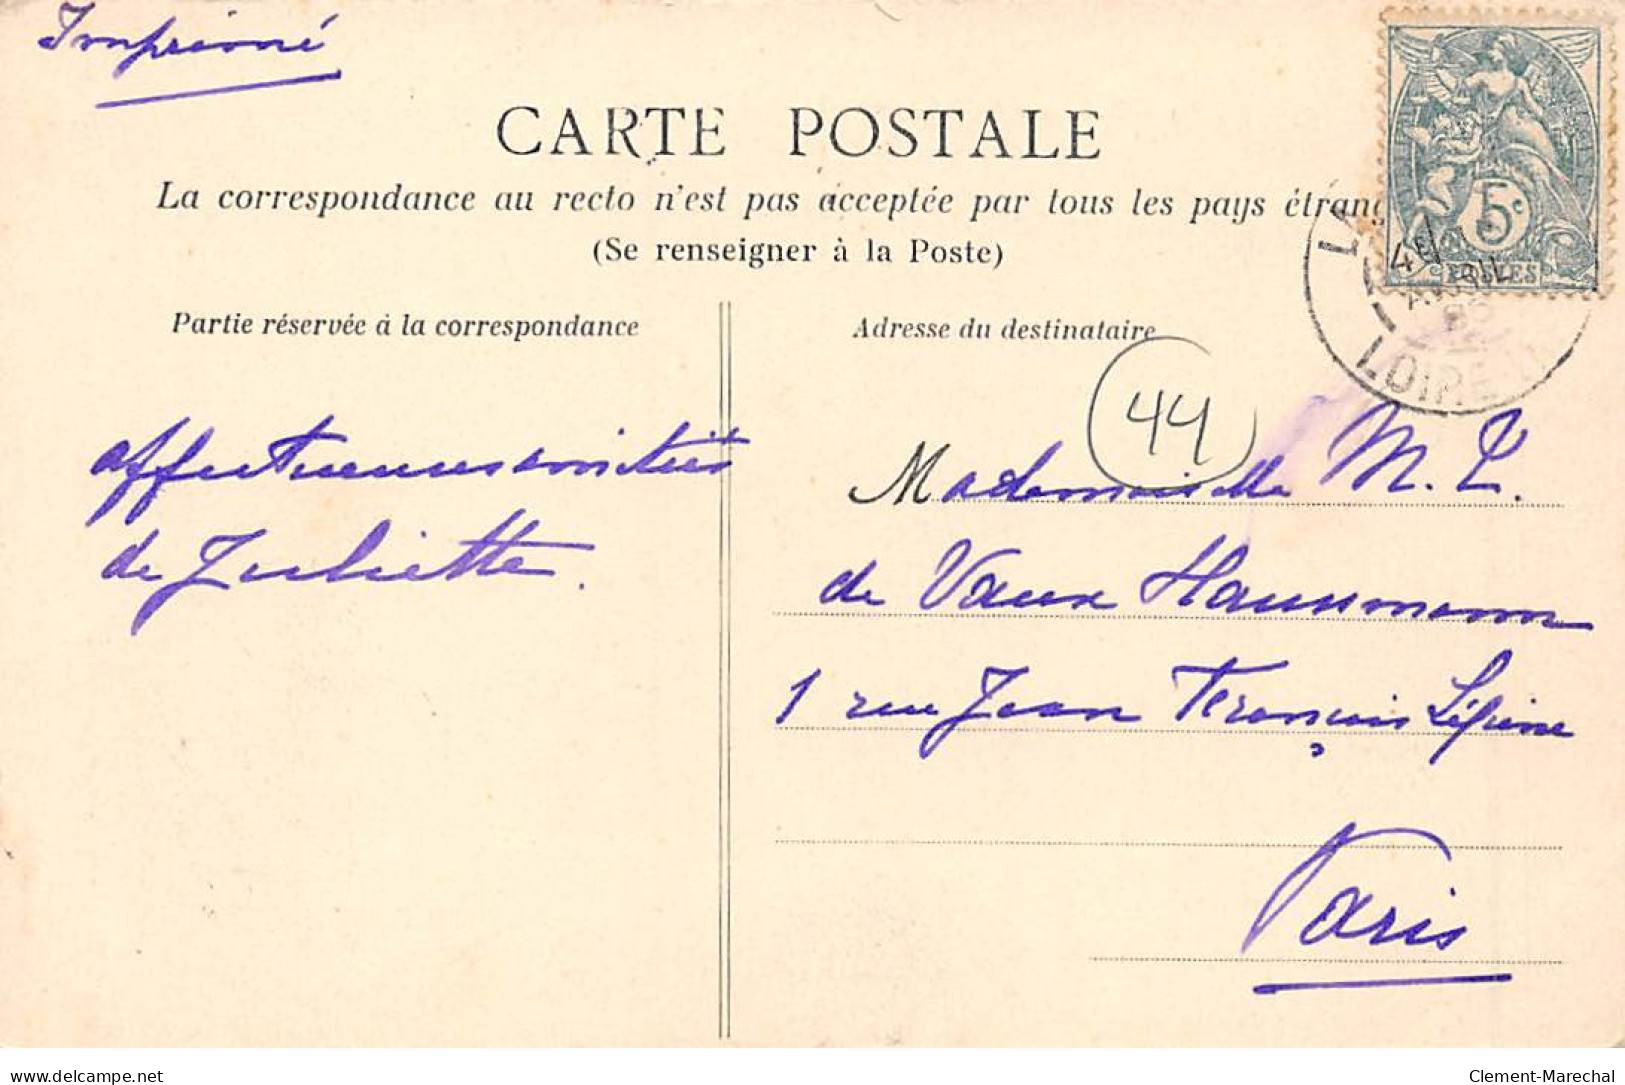 Imprimé
CARTE POSTALE
La correspondance au recto n'est pas acceptée par tous les pays étrang
(Se renseigner à la Poste)
Partie réservée à la correspondance
Adresse du destinataire
5c
POSTES
LA
LOIRE
44
affectueuses amitiés
de Juliette.
Mademoiselle M. L.
de Vaux Haussmann
1 rue Jean François Lépine
Paris
delcampe.net
Clement-Marechal